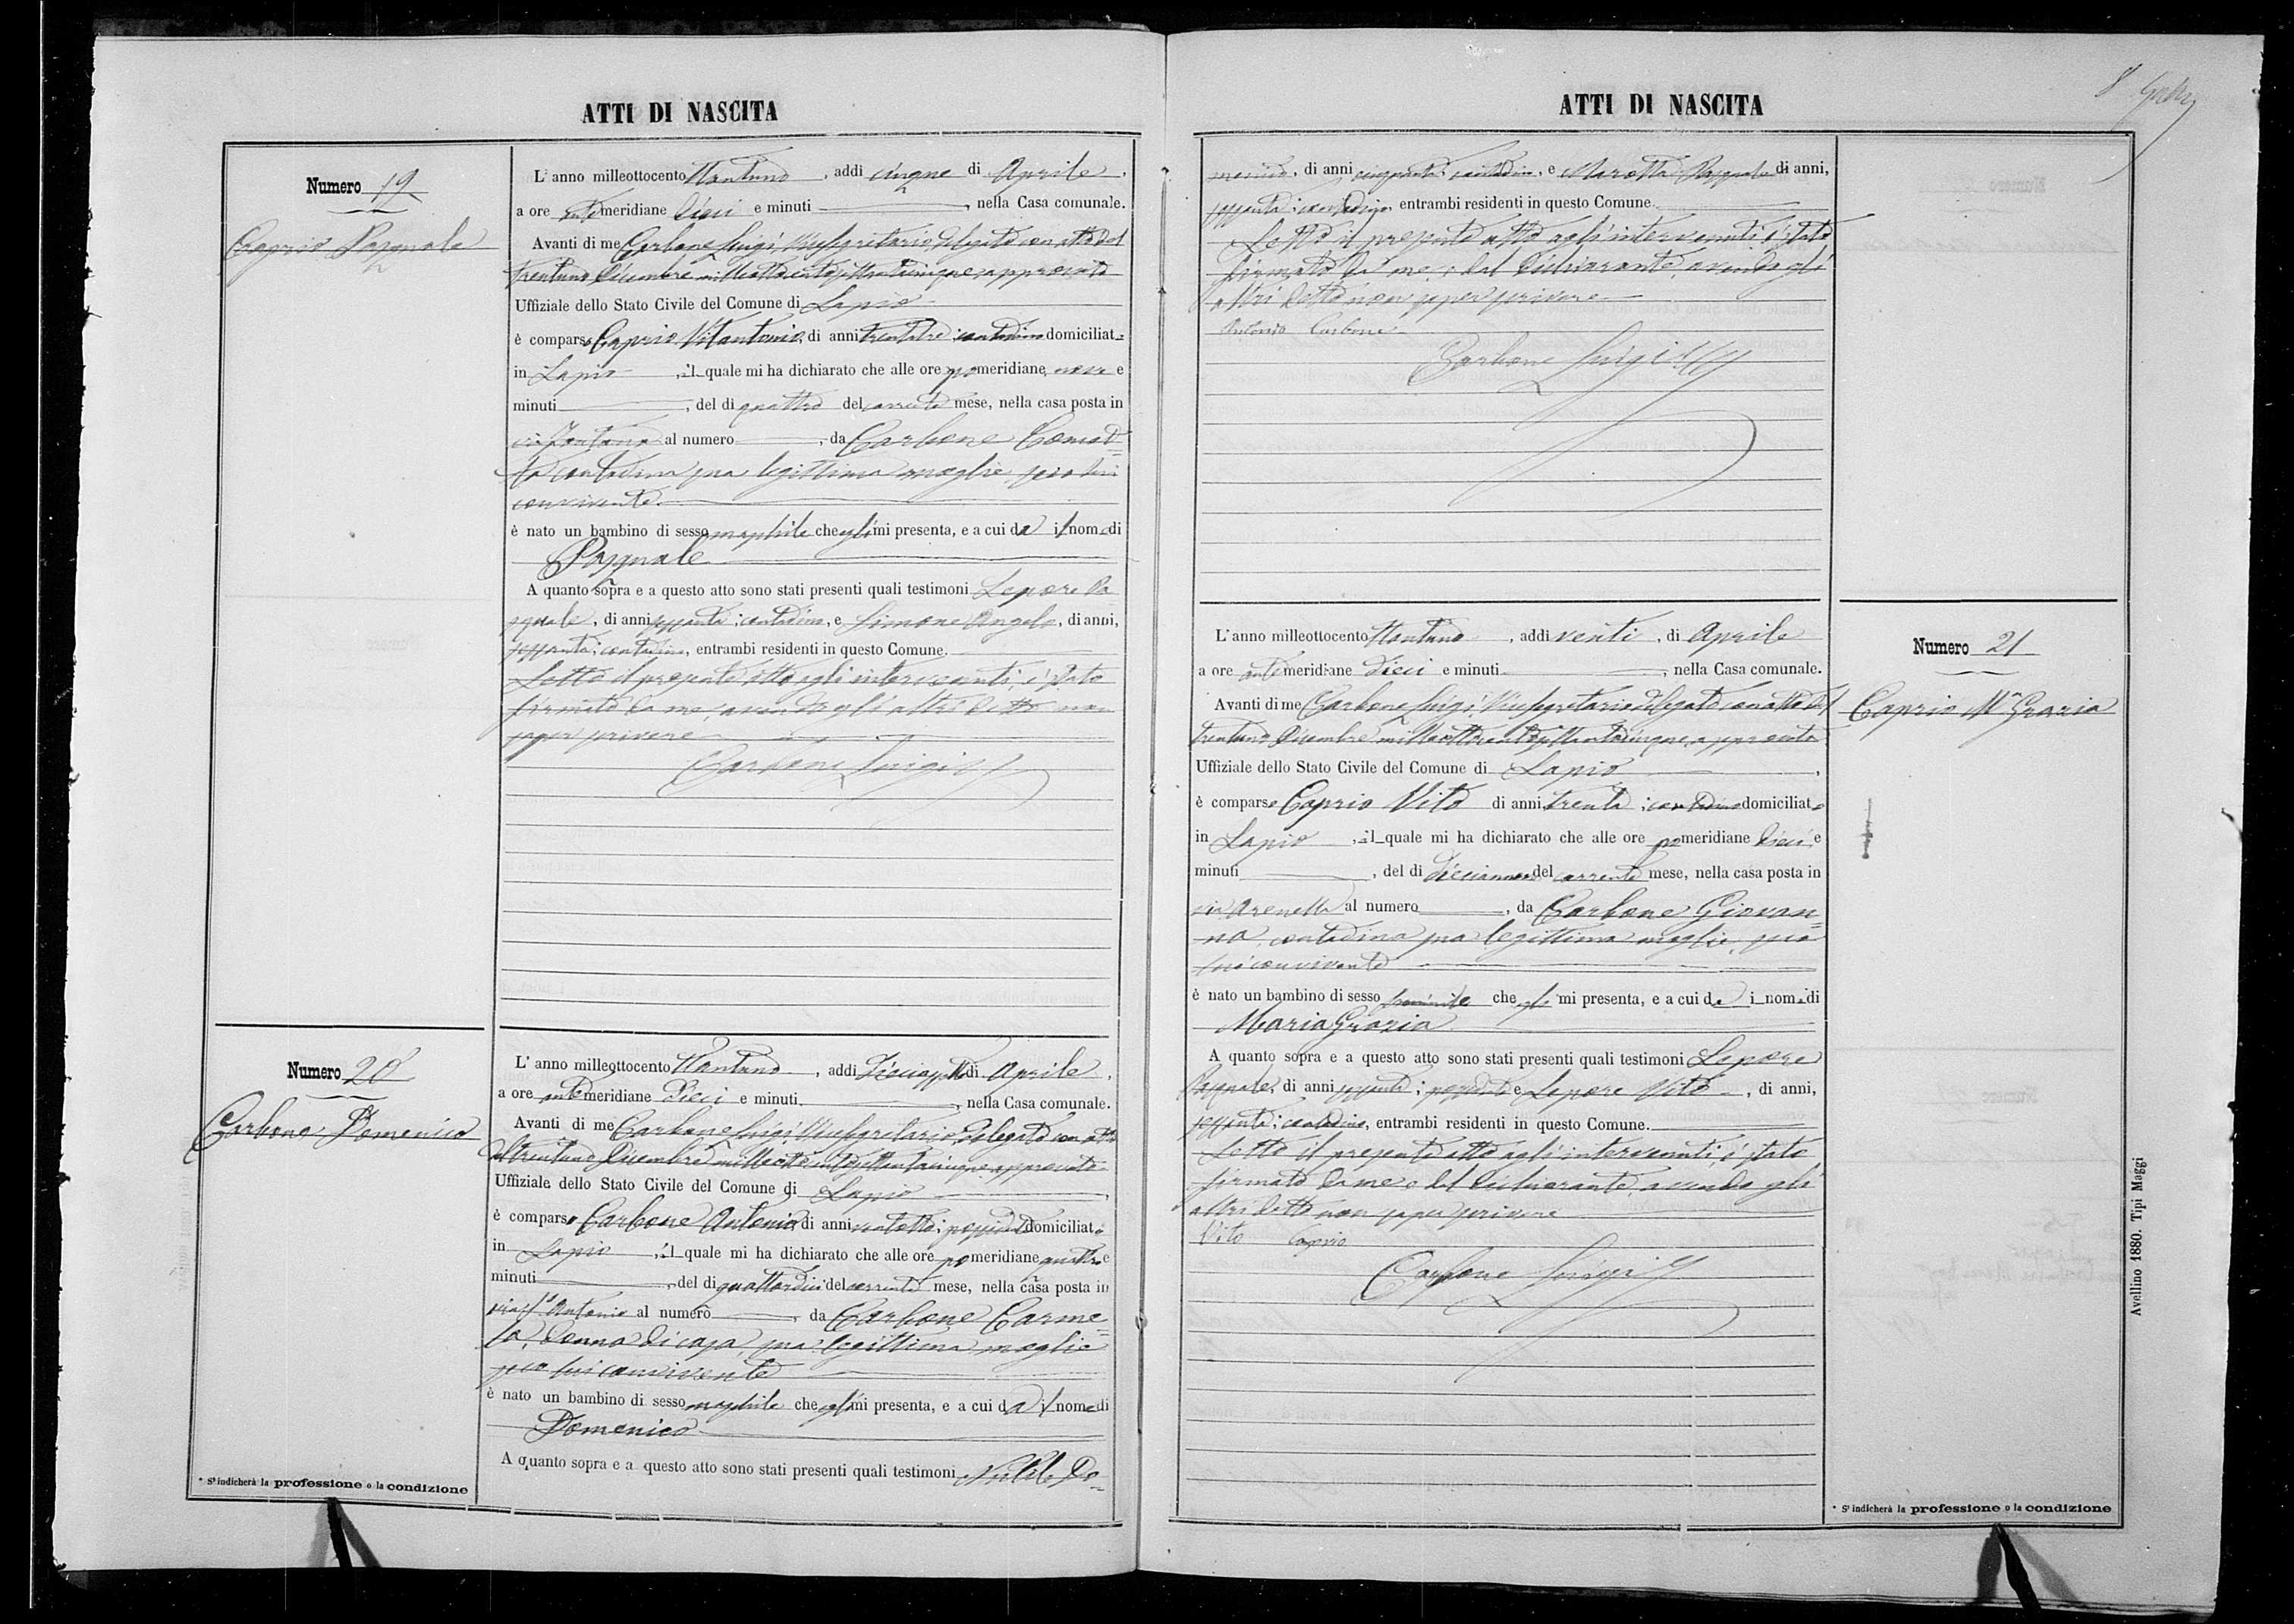 ATTI DI NASCITA
Numero 19
Caprio Pasquale
L'anno milleottocento ottantuno, addi cinque di Aprile,
a ore antemeridiane dieci e minuti, nella Casa comunale.
Avanti di me Carbone Luigi, Vicesegretario delegato con atto del
trentuno Dicembre milleottocentosettantacinque, approvato
Uffiziale dello Stato Civile del Comune di Lapio
è comparso Caprio Vitantonio, di anni trentatre; contadino domiciliato
in Lapio, il quale mi ha dichiarato che alle ore pomeridiane nove e
minuti, del di quattro del corrente mese, nella casa posta in
via Fontana al numero, da Carbone Concet=
ta contadina sua legittima moglie, seco lui
convivente
è nato un bambino di sesso maschile che egli mi presenta, e a cui da il nome di
Pasquale
A quanto sopra e a questo atto sono stati presenti quali testimoni Lepore Pa=
squale, di anni sessanta; contadino, e Simone Angelo, di anni,
sessanta; contadino, entrambi residenti in questo Comune.
Letto il presente atto agli intervenuti, è stato
firmato da me, avendo gli altri detto non
saper scrivere
Carbone Luigi
Numero 20
Carbone Domenico
L'anno milleottocento ottantuno, addi diciassette di Aprile,
a ore antemeridiane dieci e minuti, nella Casa comunale.
Avanti di me Carbone Luigi, Vicesegretario delegato con atto
del trentuno Dicembre milleottocentosettantacinque, approvato
Uffiziale dello Stato Civile del Comune di Lapio
è comparso Carbone Antonio, di anni ventotto; possidente domiciliato
in Lapio, il quale mi ha dichiarato che alle ore pomeridiane quattro e
minuti, del di quattordici del corrente mese, nella casa posta in
via St Antonio al numero, da Carbone Carme=
la, donna di casa, sua legittima moglie
seco lui convivente
è nato un bambino di sesso maschile che egli mi presenta, e a cui da il nome di
Domenico
A quanto sopra e a questo atto sono stati presenti quali testimoni Do=
* S' indicherà la professione o la condizione
ATTI DI NASCITA
8
menico, di anni cinquanta; contadino, e Marotta Pasquale di anni,
sessanta; contadino, entrambi residenti in questo Comune.
Letto il presente atto agli intervenuti, è stato
firmato da me e dal dichiarante, avendo gli
altri detto non saper scrivere
Antonio Carbone
Carbone Luigi
Numero 21
Caprio Ma Grazia
L'anno milleottocento ottantuno, addi venti, di Aprile
a ore antemeridiane dieci e minuti, nella Casa comunale.
Avanti di me Carbone Luigi, Vicesegretario delegato con atto del
trentuno Dicembre milleottocentosettantacinque, approvato
Uffiziale dello Stato Civile del Comune di Lapio,
è comparso Caprio Vito di anni trenta; contadino domiciliato
in Lapio, il quale mi ha dichiarato che alle ore pomeridiane dieci e
minuti, del di diciannove del corrente mese, nella casa posta in
via Arenella al numero, da Carbone Giovan=
na, contadina sua legittima moglie, seco
lui convivente
è nato un bambino di sesso feminile che egli mi presenta, e a cui da i nome di
Maria Grazia
A quanto sopra e a questo atto sono stati presenti quali testimoni Lepore
Pasquale, di anni sessanta; e Lepore Vito, di anni,
sessanta; contadino, entrambi residenti in questo Comune.
Letto il presente atto agli intervenuti, è stato
firmato da me e dal dichiarante, avendo gli
altri detto non saper scrivere
Vito Caprio
Carbone Luigi
* S' indicherà la professione o la condizione
Avellino 1880. Tipi Maggi